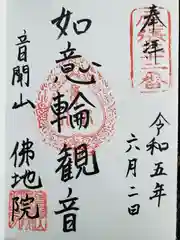 奉拝
令和五年
六月二日
如意輪観音
音聞山
佛地院